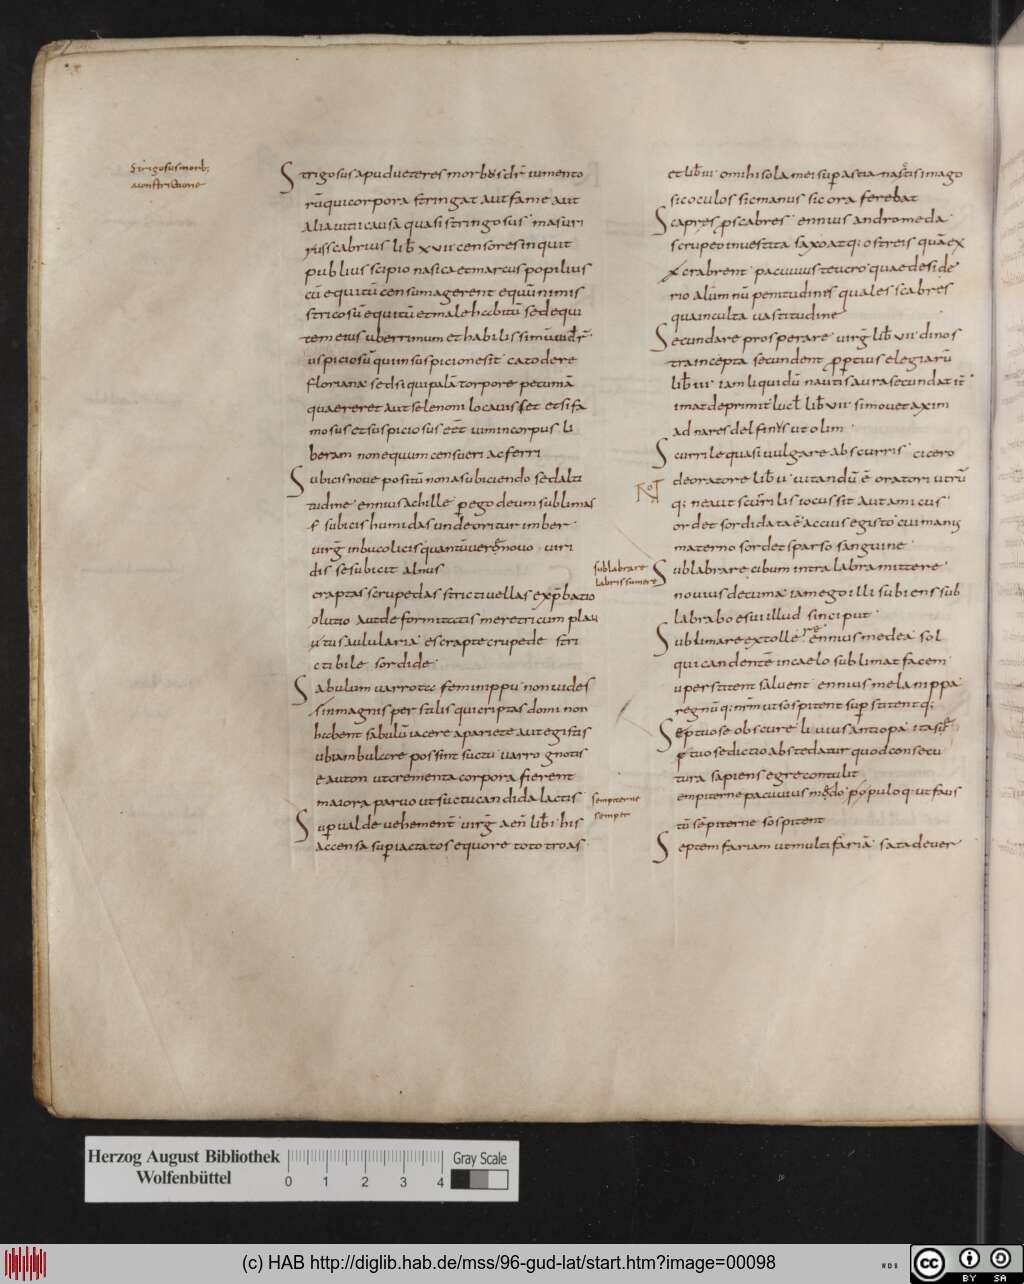 Strigosus morb;
a conſtrictione
Strigosus apud ueteres morbus dr̄ iumento
rū qui corpora stringat aut fame aut
alia uitii causā quasi stringosus masuri
us scabrius lib̄ xvii censores inquit
publius scipio nasica et marcus popilius
cū equitū censum agerent equū nimis
stricosū equitū et male habitū sed equi
tem eius uberrimum et habilissimū uider̄
uspiciosū qui in suspicione sit cato de re
floriana sed si qui palā corpore pecuniā
quaereret aut se lenoni locauisset etsi fa
mosus et suspiciosus eēt uim in corpus li
beram non equum censueri ac ferri
Subicis noue positū non a subiciendo sed alti
tudine ennius achille per ego deum sublimas
subicis humidas unde oritur imber
uirḡ in bucolicis quantū uere nouo uiri
dis se subicit alnus
craptas scrupedas strictiuellas exp̄batio
olutio aut deformitatis meretricum plau
utus aulularia escraptecrupede stri
ctibile sordide
Sabulum uarro tafeminippu non uides
in magnis perstilis qui criptas domi non
habent sabulū iacere a pariete aut egistis
ubi ambulare possint suctu uarro gnotis
eauton ut crementa corpora fierent
maiora paruo ut suctu candida lactis
Super ualde uehement̄ uirḡ aen̄ lib̄ i his
accensa super iactatos equore toto troas
et lib̄ iii o mihi sola mei super astianactis imago
sic oculos sic manus sic ora ferebat
Scapres pro scabres ennius andromeda
scrupeo inuestita saxo atq: ostreis quā ex
crabrent pacuuius teucro quae deside
rio alūmnū penitudinis quales scabres
que inculta uastitudine
Secundare prosperare uirḡ lib̄ vii dinos
tra incepta secundent propertius elegiarū
lib̄ iii iam liquidū nautis aura secundat it̄
imat deprimit lucl̄ lib̄ xvii si mouet ax im
ad nares delfinus ut olim
Scurrile quasi uulgare ab scurris cicero
de oratore lib̄ ii uitandū ē oratori utrū
q: ne aut scurrilis iocus sit aut amicus
ordet sordidata ē accius egisto cui manus
materno sordet sparso sanguine
sublabrare
labris sumere
Sublabrare cibum intra labra mittere
nouius decuma iam ego illi subiens sub
labrabo esui illud sinciput
Sublimare extollere ennius medea sol
qui candentē in caelo sublimat facem
uperstitent saluent ennius melanippa
regnū q: nr̄m ut sospitent superstitent q:
Septuose obscure liuius antiopa ita sep
tuose dictio abs te datur quod coniectu
tura sapiens egre contulit
sempiterne
semper
empiterne pacuuius medo populo q: ut faus
tū sēpiterne sospitent
Septemfariam ut multifariā sata deuer
Herzog August Bibliothek
Wolfenbüttel
0 1 2 3 4
Gray Scale
(c) HAB http://diglib.hab.de/mss/96-gud-lat/start.htm?image=00098
cc BY SA